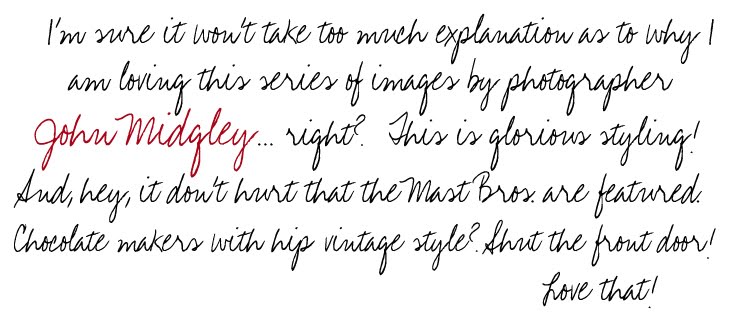 I'm sure it won't take too much explanation as to why I
am loving this series of images by photographer
John Midgley... right? This is glorious styling!
And, hey, it don't hurt that the Mast Bros. are featured.
Chocolate makers with hip vintage style? Shut the front door!
Love that!